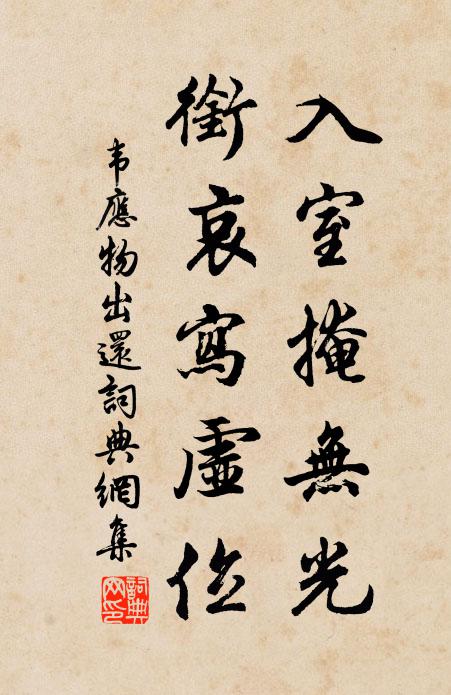 入室掩無光
銜哀寫虛位
韦應物出還詞典網集
詞典网印